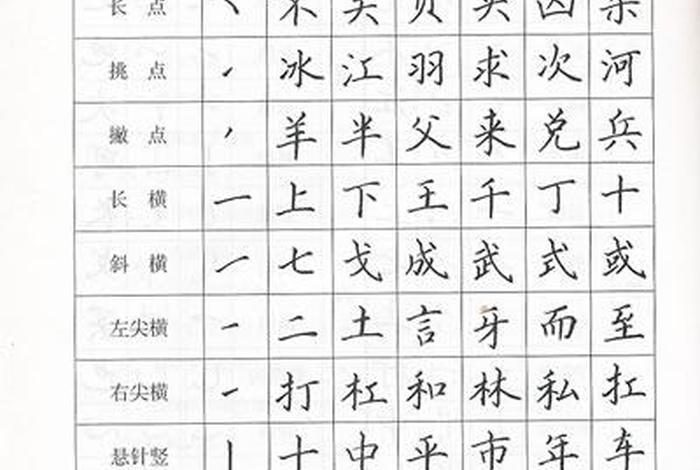 长 点 ㇔ 不 头 贝 囚
挑 点 冰 江 羽 求 次 河
撇 点 羊 半 父 来 兑 兵
长 横 一 上 下 王 千 丁 十
斜 横 一 七 戈 成 武 式 或
左尖横 一 二 土 言 牙 而 至
右尖横 一 打 杠 和 林 私 扛
悬针竖 丨 十 中 平 市 年 车